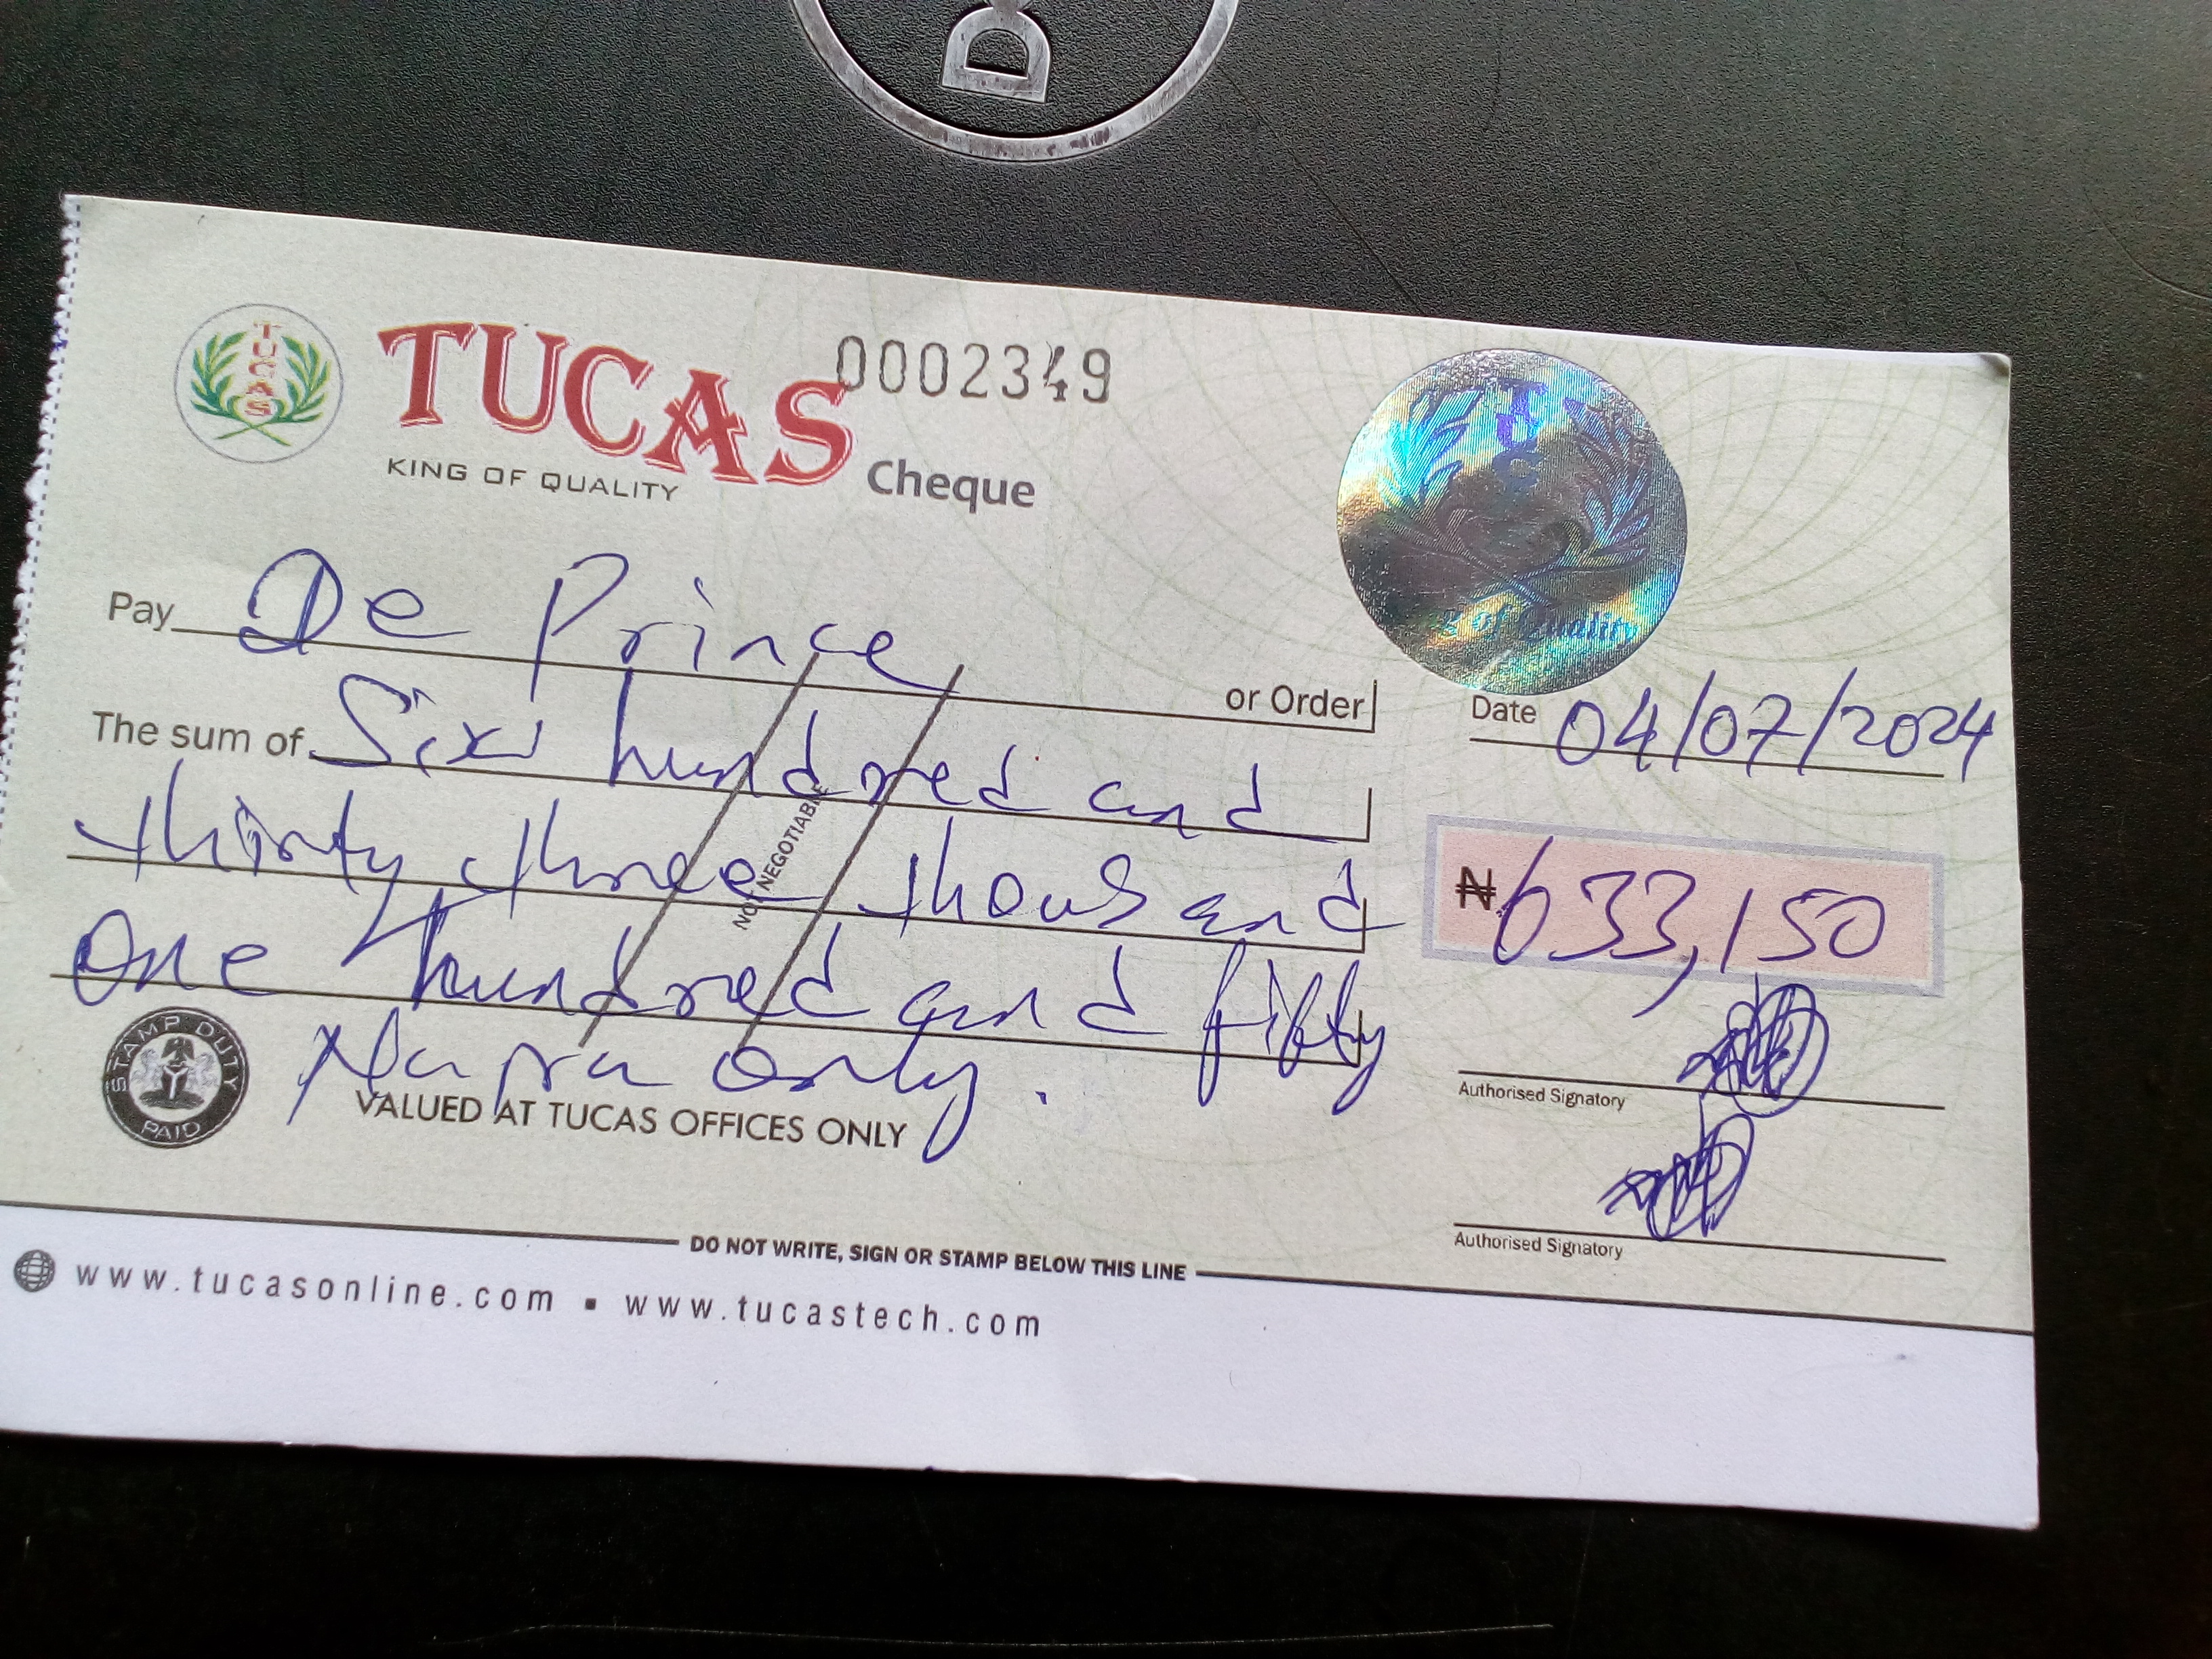 D
TUCAS
TUCAS 0002349
KING OF QUALITY Cheque
Pay De Prince or Order
Date 04/07/2024
The sum of Six hundred and
thirty three thousand
₦633,150
One hundred and fifty
Naira only.
NOT NEGOTIABLE
STAMP DUTY PAID
VALUED AT TUCAS OFFICES ONLY
Authorised Signatory
Authorised Signatory
DO NOT WRITE, SIGN OR STAMP BELOW THIS LINE
www.tucasonline.com ▪ www.tucastech.com